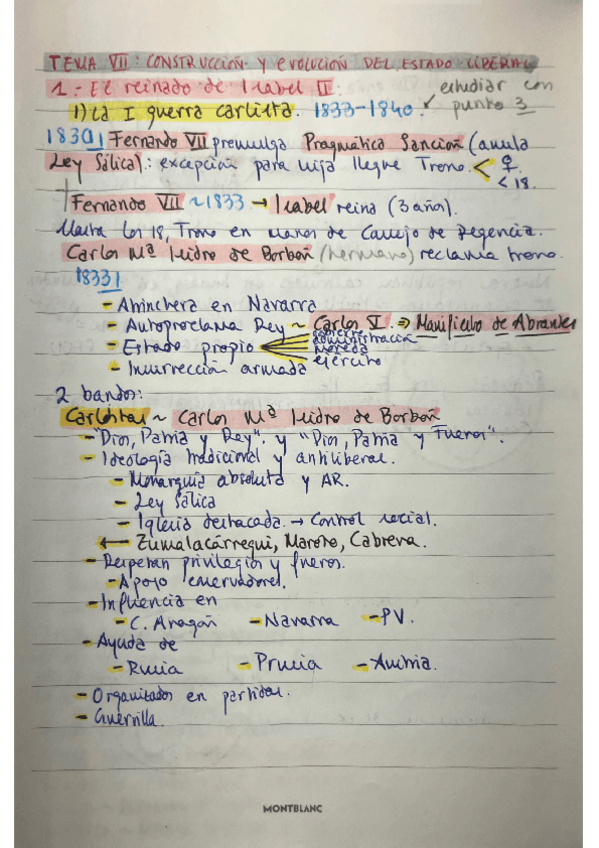 TEMA VII: CONSTRUCCIÓN Y EVOLUCIÓN DEL ESTADO LIBERAL
1.- El reinado de Isabel II:
estudiar con punto 3
1) La I guerra carlista. 1833-1840.
1830| Fernando VII promulga Pragmática Sanción (anula
Ley Sálica): excepción para hija llegue Trono. < ♀
< 18.
† Fernando VII ~ 1833 → Isabel reina (3 años).
Hasta los 18, Trono en manos de Consejo de Regencia.
Carlos Mª Isidro de Borbón (hermano) reclama trono.
1833|
- Atrinchera en Navarra
- Autoproclama Rey ~ Carlos V. ⇒ Manifiesto de Abrantes
- Estado propio
administración
moneda
ejército
- Insurrección armada
2 bandos:
Carlistas ~ Carlos Mª Isidro de Borbón
- "Dios, Patria y Rey". y "Dios, Patria y Fueros".
- Ideología tradicional y antiliberal.
- Monarquía absoluta y AR.
- Ley Sálica
- Iglesia destacada. → Control social.
← Zumalacárregui, Maroto, Cabrera.
- Respetan privilegios y fueros.
- Apoyo conservadores.
- Influencia en
- C. Aragón - Navarra - PV.
- Ayuda de
- Rusia - Prusia - Austria.
- Organizados en partidas.
- Guerrilla.
MONTBLANC